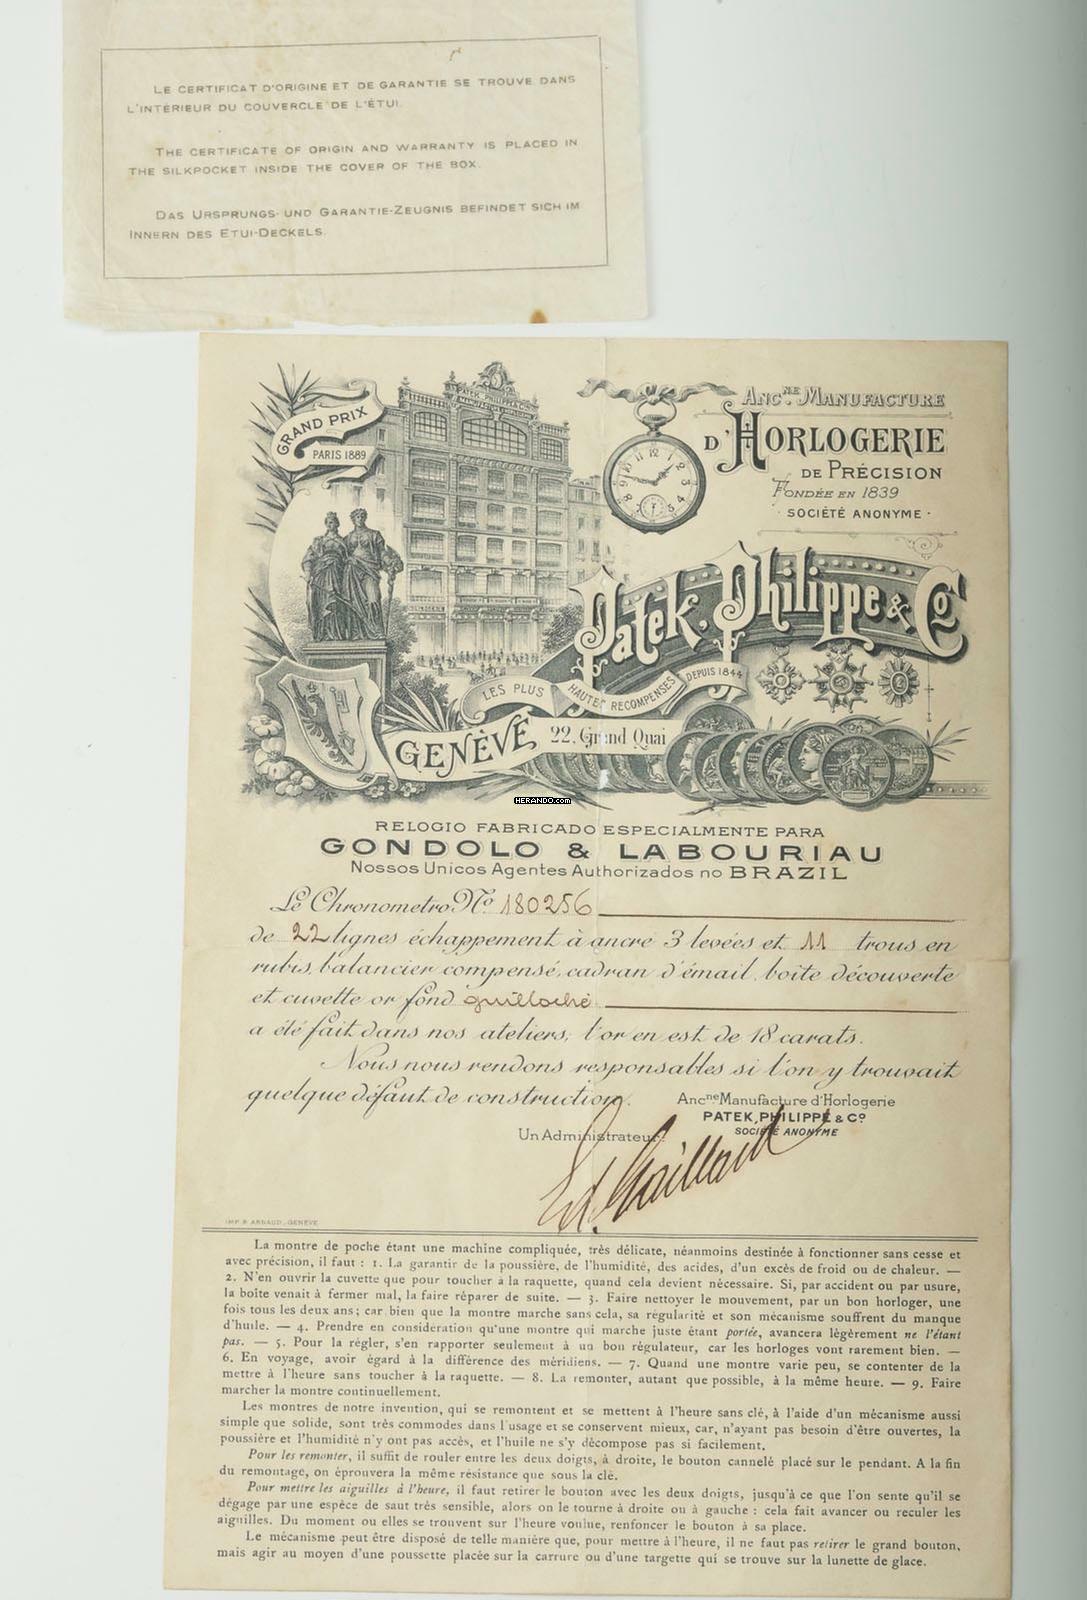 LE CERTIFICAT D'ORIGINE ET DE GARANTIE SE TROUVE DANS
L'INTÉRIEUR DU COUVERCLE DE L'ÉTUI.
THE CERTIFICATE OF ORIGIN AND WARRANTY IS PLACED IN
THE SILKPOCKET INSIDE THE COVER OF THE BOX.
DAS URSPRUNGS- UND GARANTIE-ZEUGNIS BEFINDET SICH IM
INNERN DES ETUI-DECKELS.
GRAND PRIX
PARIS 1889
PATEK PHILIPPE & CIE
ANCNE MANUFACTURE
D'HORLOGERIE
DE PRÉCISION
FONDÉE EN 1839
SOCIÉTÉ ANONYME
Patek, Philippe & Co
LES PLUS HAUTES RECOMPENSES DEPUIS 1844
GENÈVE 22, Grand Quai
HERANDO.com
RELOGIO FABRICADO ESPECIALMENTE PARA
GONDOLO & LABOURIAU
Nossos Unicos Agentes Authorizados no BRAZIL
Le Chronometro No 180256
de 22 lignes échappement à ancre 3 levées et 11 trous en
rubis, balancier compensé, cadran d'émail, boîte découverte
et cuvette or fond guilloché
a été fait dans nos ateliers; l'or en est de 18 carats.
Nous nous rendons responsables si l'on y trouvait
quelque défaut de construction.
Ancne Manufacture d'Horlogerie
PATEK, PHILIPPE & Co
SOCIÉTÉ ANONYME
Un Administrateur,
Ed. Gaillard
IMP. P. ARNAUD, GENÈVE
La montre de poche étant une machine compliquée, très délicate, néanmoins destinée à fonctionner sans cesse et
avec précision, il faut : 1. La garantir de la poussière, de l'humidité, des acides, d'un excès de froid ou de chaleur. —
2. N'en ouvrir la cuvette que pour toucher à la raquette, quand cela devient nécessaire. Si, par accident ou par usure,
la boîte venait à fermer mal, la faire réparer de suite. — 3. Faire nettoyer le mouvement, par un bon horloger, une
fois tous les deux ans; car bien que la montre marche sans cela, sa régularité et son mécanisme souffrent du manque
d'huile. — 4. Prendre en considération qu'une montre qui marche juste étant portée, avancera légèrement ne l'étant
pas. — 5. Pour la régler, s'en rapporter seulement à un bon régulateur, car les horloges vont rarement bien. —
6. En voyage, avoir égard à la différence des méridiens. — 7. Quand une montre varie peu, se contenter de la
mettre à l'heure sans toucher à la raquette. — 8. La remonter, autant que possible, à la même heure. — 9. Faire
marcher la montre continuellement.
Les montres de notre invention, qui se remontent et se mettent à l'heure sans clé, à l'aide d'un mécanisme aussi
simple que solide, sont très commodes dans l'usage et se conservent mieux, car, n'ayant pas besoin d'être ouvertes, la
poussière et l'humidité n'y ont pas accès, et l'huile ne s'y décompose pas si facilement.
Pour les remonter, il suffit de rouler entre les deux doigts, à droite, le bouton cannelé placé sur le pendant. A la fin
du remontage, on éprouvera la même résistance que sous la clé.
Pour mettre les aiguilles à l'heure, il faut retirer le bouton avec les deux doigts, jusqu'à ce que l'on sente qu'il se
dégage par une espèce de saut très sensible, alors on le tourne à droite ou à gauche : cela fait avancer ou reculer les
aiguilles. Du moment ou elles se trouvent sur l'heure voulue, renfoncer le bouton à sa place.
Le mécanisme peut être disposé de telle manière que, pour mettre à l'heure, il ne faut pas retirer le grand bouton,
mais agir au moyen d'une poussette placée sur la carrure ou d'une targette qui se trouve sur la lunette de glace.